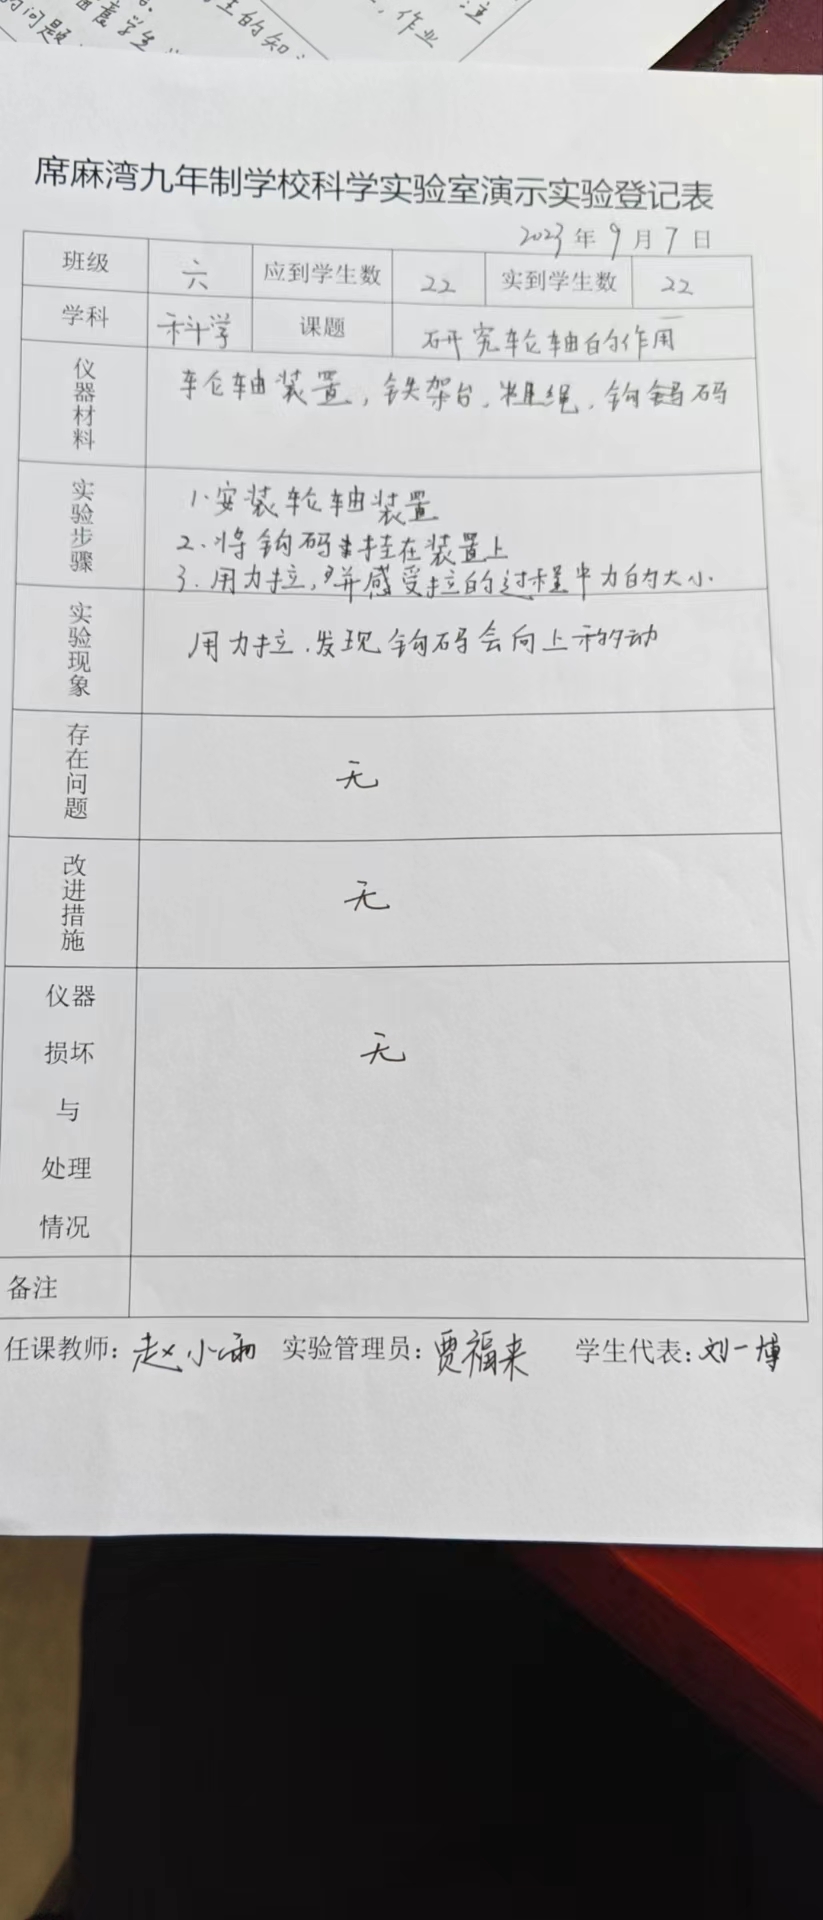 注
作业
生的知
度学生
的问题
席麻湾九年制学校科学实验室演示实验登记表
2023年9月7日
班级 六 应到学生数 22 实到学生数 22
学科 科学 课题 研究轮轴的作用
仪器材料 轮轴装置，铁架台、粗绳、钩码
实验步骤 1.安装轮轴装置
2.将钩码挂在装置上
3.用力拉，并感受拉的过程中力的大小.
实验现象 用力拉.发现钩码会向上移动
存在问题 无
改进措施 无
仪器
损坏 无
与
处理
情况
备注
任课教师：赵小雨 实验管理员：贾福来 学生代表：刘一博